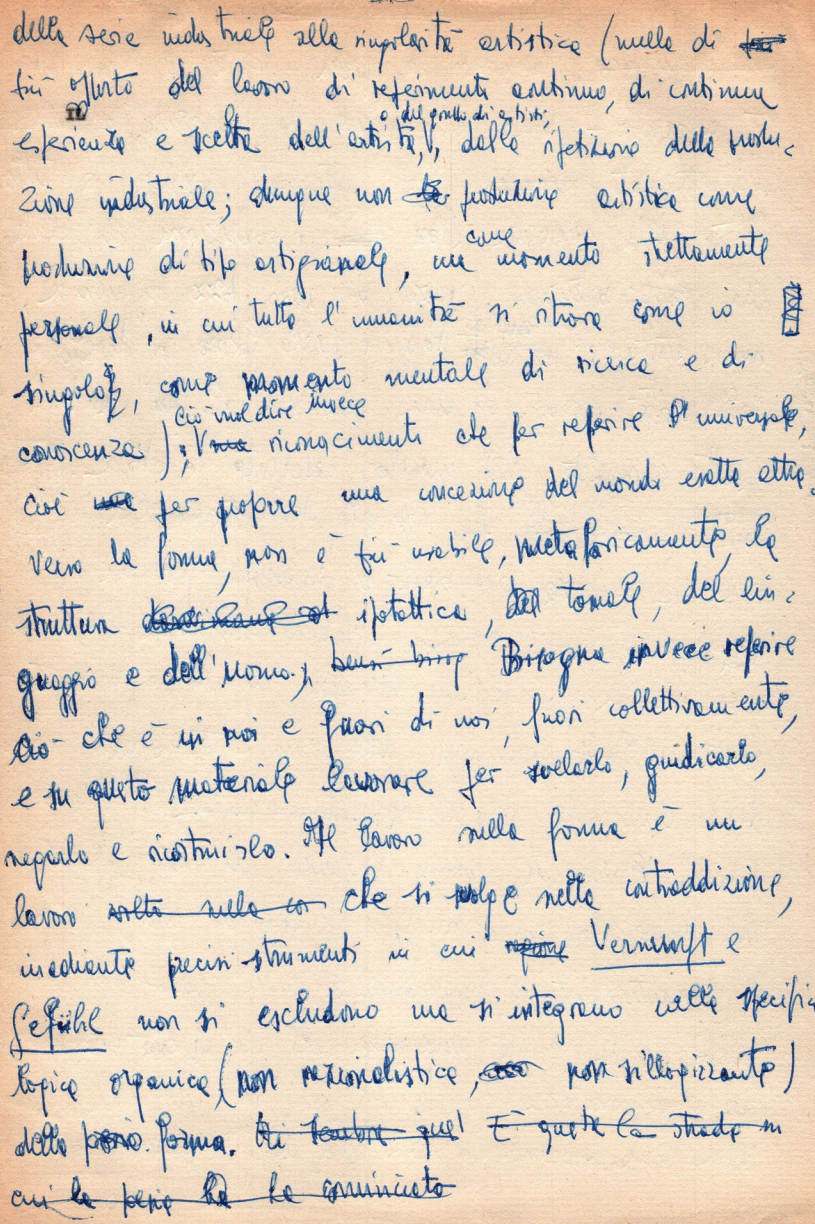 della serie industriale alla singolarità artistica (nulla di
più opposto del lavoro di riferimento continuo, di continua
o del gruppo di artisti,
esperienza e scelta dell'artista, dalla ripetizione della produ-
zione industriale; dunque non produzione artistica come
produzione di tipo artigianale, ma come momento strettamente
personale, in cui tutta l'umanità si ritrova come io
singolo, come momento mentale di ricerca e di
ciò vuol dire invece
conoscenza); riconoscimento che per riferire l'universale,
cioè una per proporre una concezione del mondo esatta attra-
verso la forma, non è più usabile, metaforicamente, la
struttura ipotattica, tonale, del lin-
guaggio e dell'uomo. bensì bisog Bisogna invece riferire
ciò che è in noi e fuori di noi, fuori collettivamente,
e su questo materiale lavorare per svelarlo, giudicarlo,
negarlo e ricostruirlo. Il lavoro nella forma è un
lavoro svolto nella con che si svolge nella contraddizione,
mediante precisi strumenti in cui ragione Vernunft e
Gefühl non si escludono ma si integrano nella specifica
logica organica (non razionalistica, non sillogizzante)
della forma. Mi sembra que È questa la strada in
cui la poesia ha ha cominciato